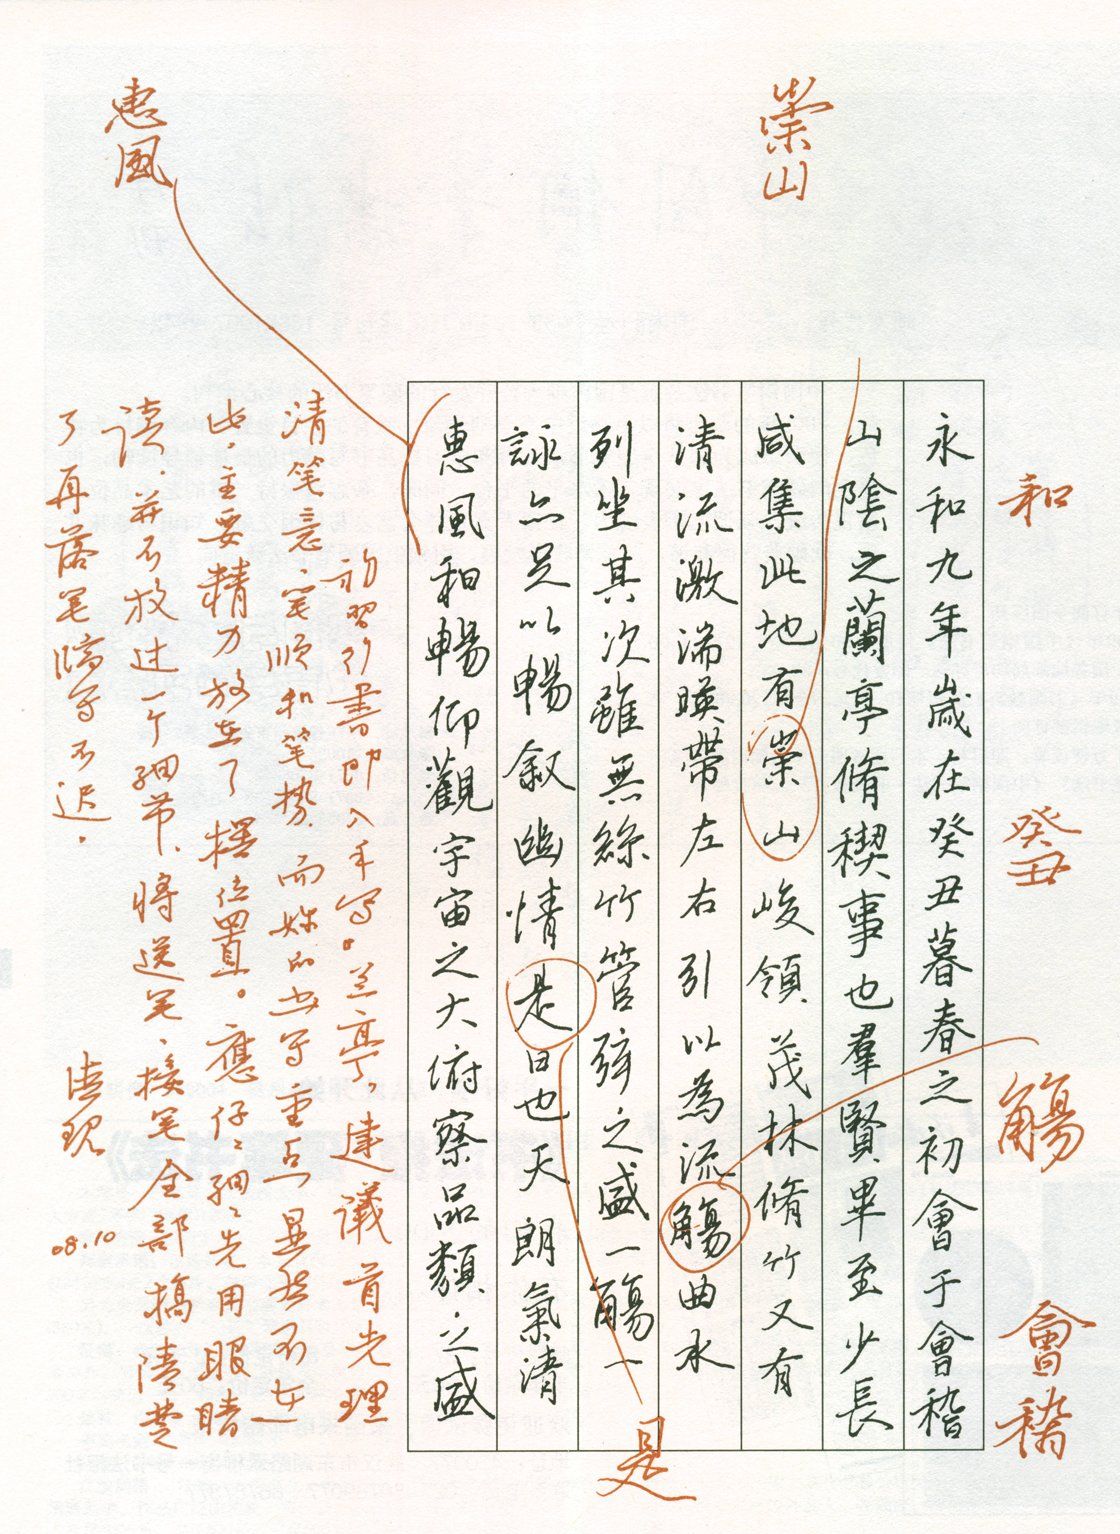 崇山
惠風
永和九年歲在癸丑暮春之初會于會稽
山陰之蘭亭脩稧事也羣賢畢至少長
咸集此地有崇山峻領茂林脩竹又有
清流激湍暎帶左右引以為流觴曲水
列坐其次雖無絲竹管弦之盛一觴一
詠亦足以暢敘幽情是日也天朗氣清
惠風和暢仰觀宇宙之大俯察品類之盛
和
癸丑
觴
會稽
是
初習行書即入手写兰亭，建议首先理
清笔意、笔顺和笔势，而你的书写重点显然不在
此，主要精力放在了摆位置。應仔细先用眼睛
读，并不放过一个细节，将送笔、接笔全部搞清楚
了再落笔临写不迟。
08.10